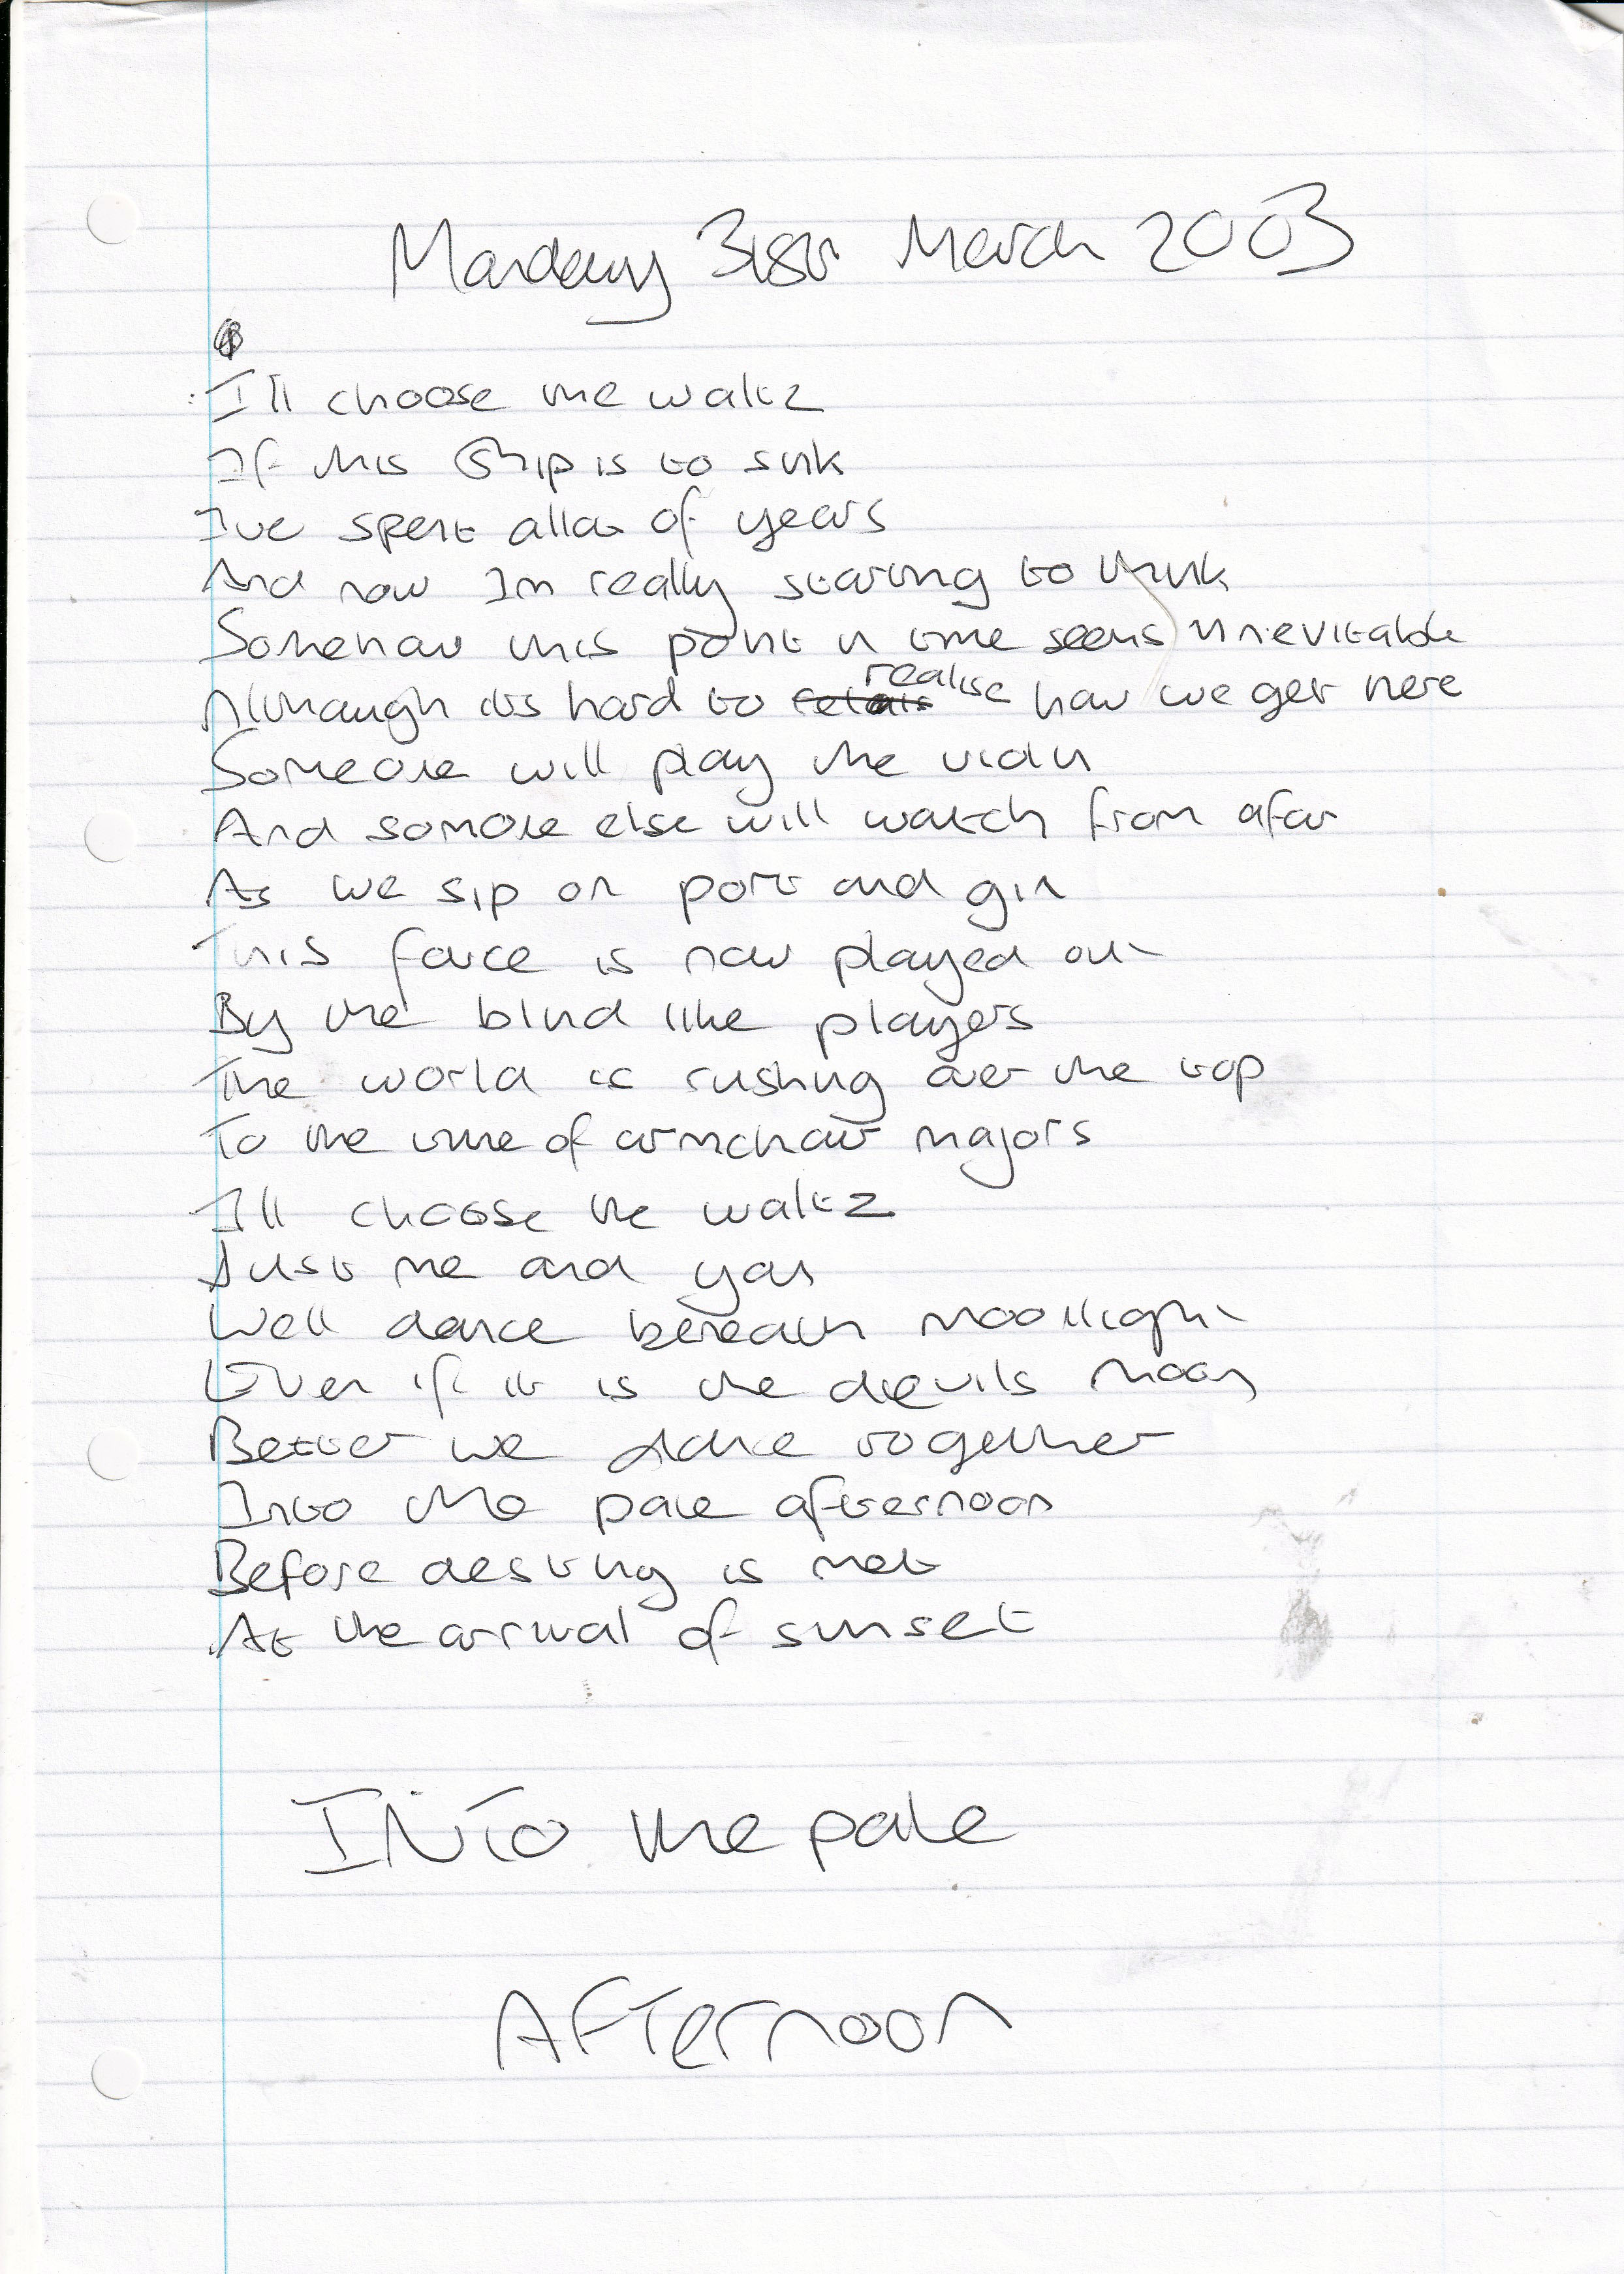 Monday 31st March 2003
I'll choose the waltz
If this ship is to sink
I've spent allot of years
And now Im really starting to think
Somehow this point in time seems unnevitable
Although its hard to realise how we get here
Someone will play the violin
And somone else will watch from afar
As we sip on port and gin
This farce is now played out
By the blind like players
The world is rushing over the top
To the tune of armchair majors
I'll choose the waltz
Just me and you
Well dance beneath moonlight
Even if it is the devils moon
Better we dance together
Into the pale afternoon
Before destiny is met
At the arrival of sunset
INTO the pale
AFTernoon